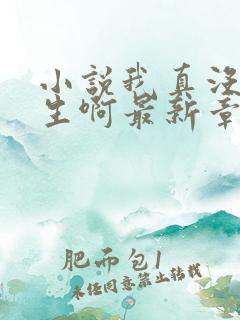 小說我真没
生啊最新章
肥而包1
未经同意禁止转载